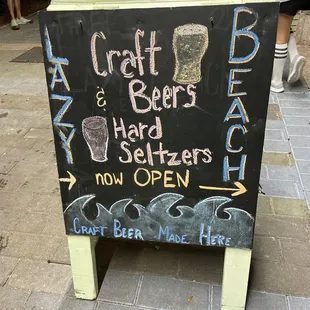 LAZY
BEACH
Craft
& Beers
Hard
Seltzers
NOW OPEN
CRAFT BEER MADE HERE